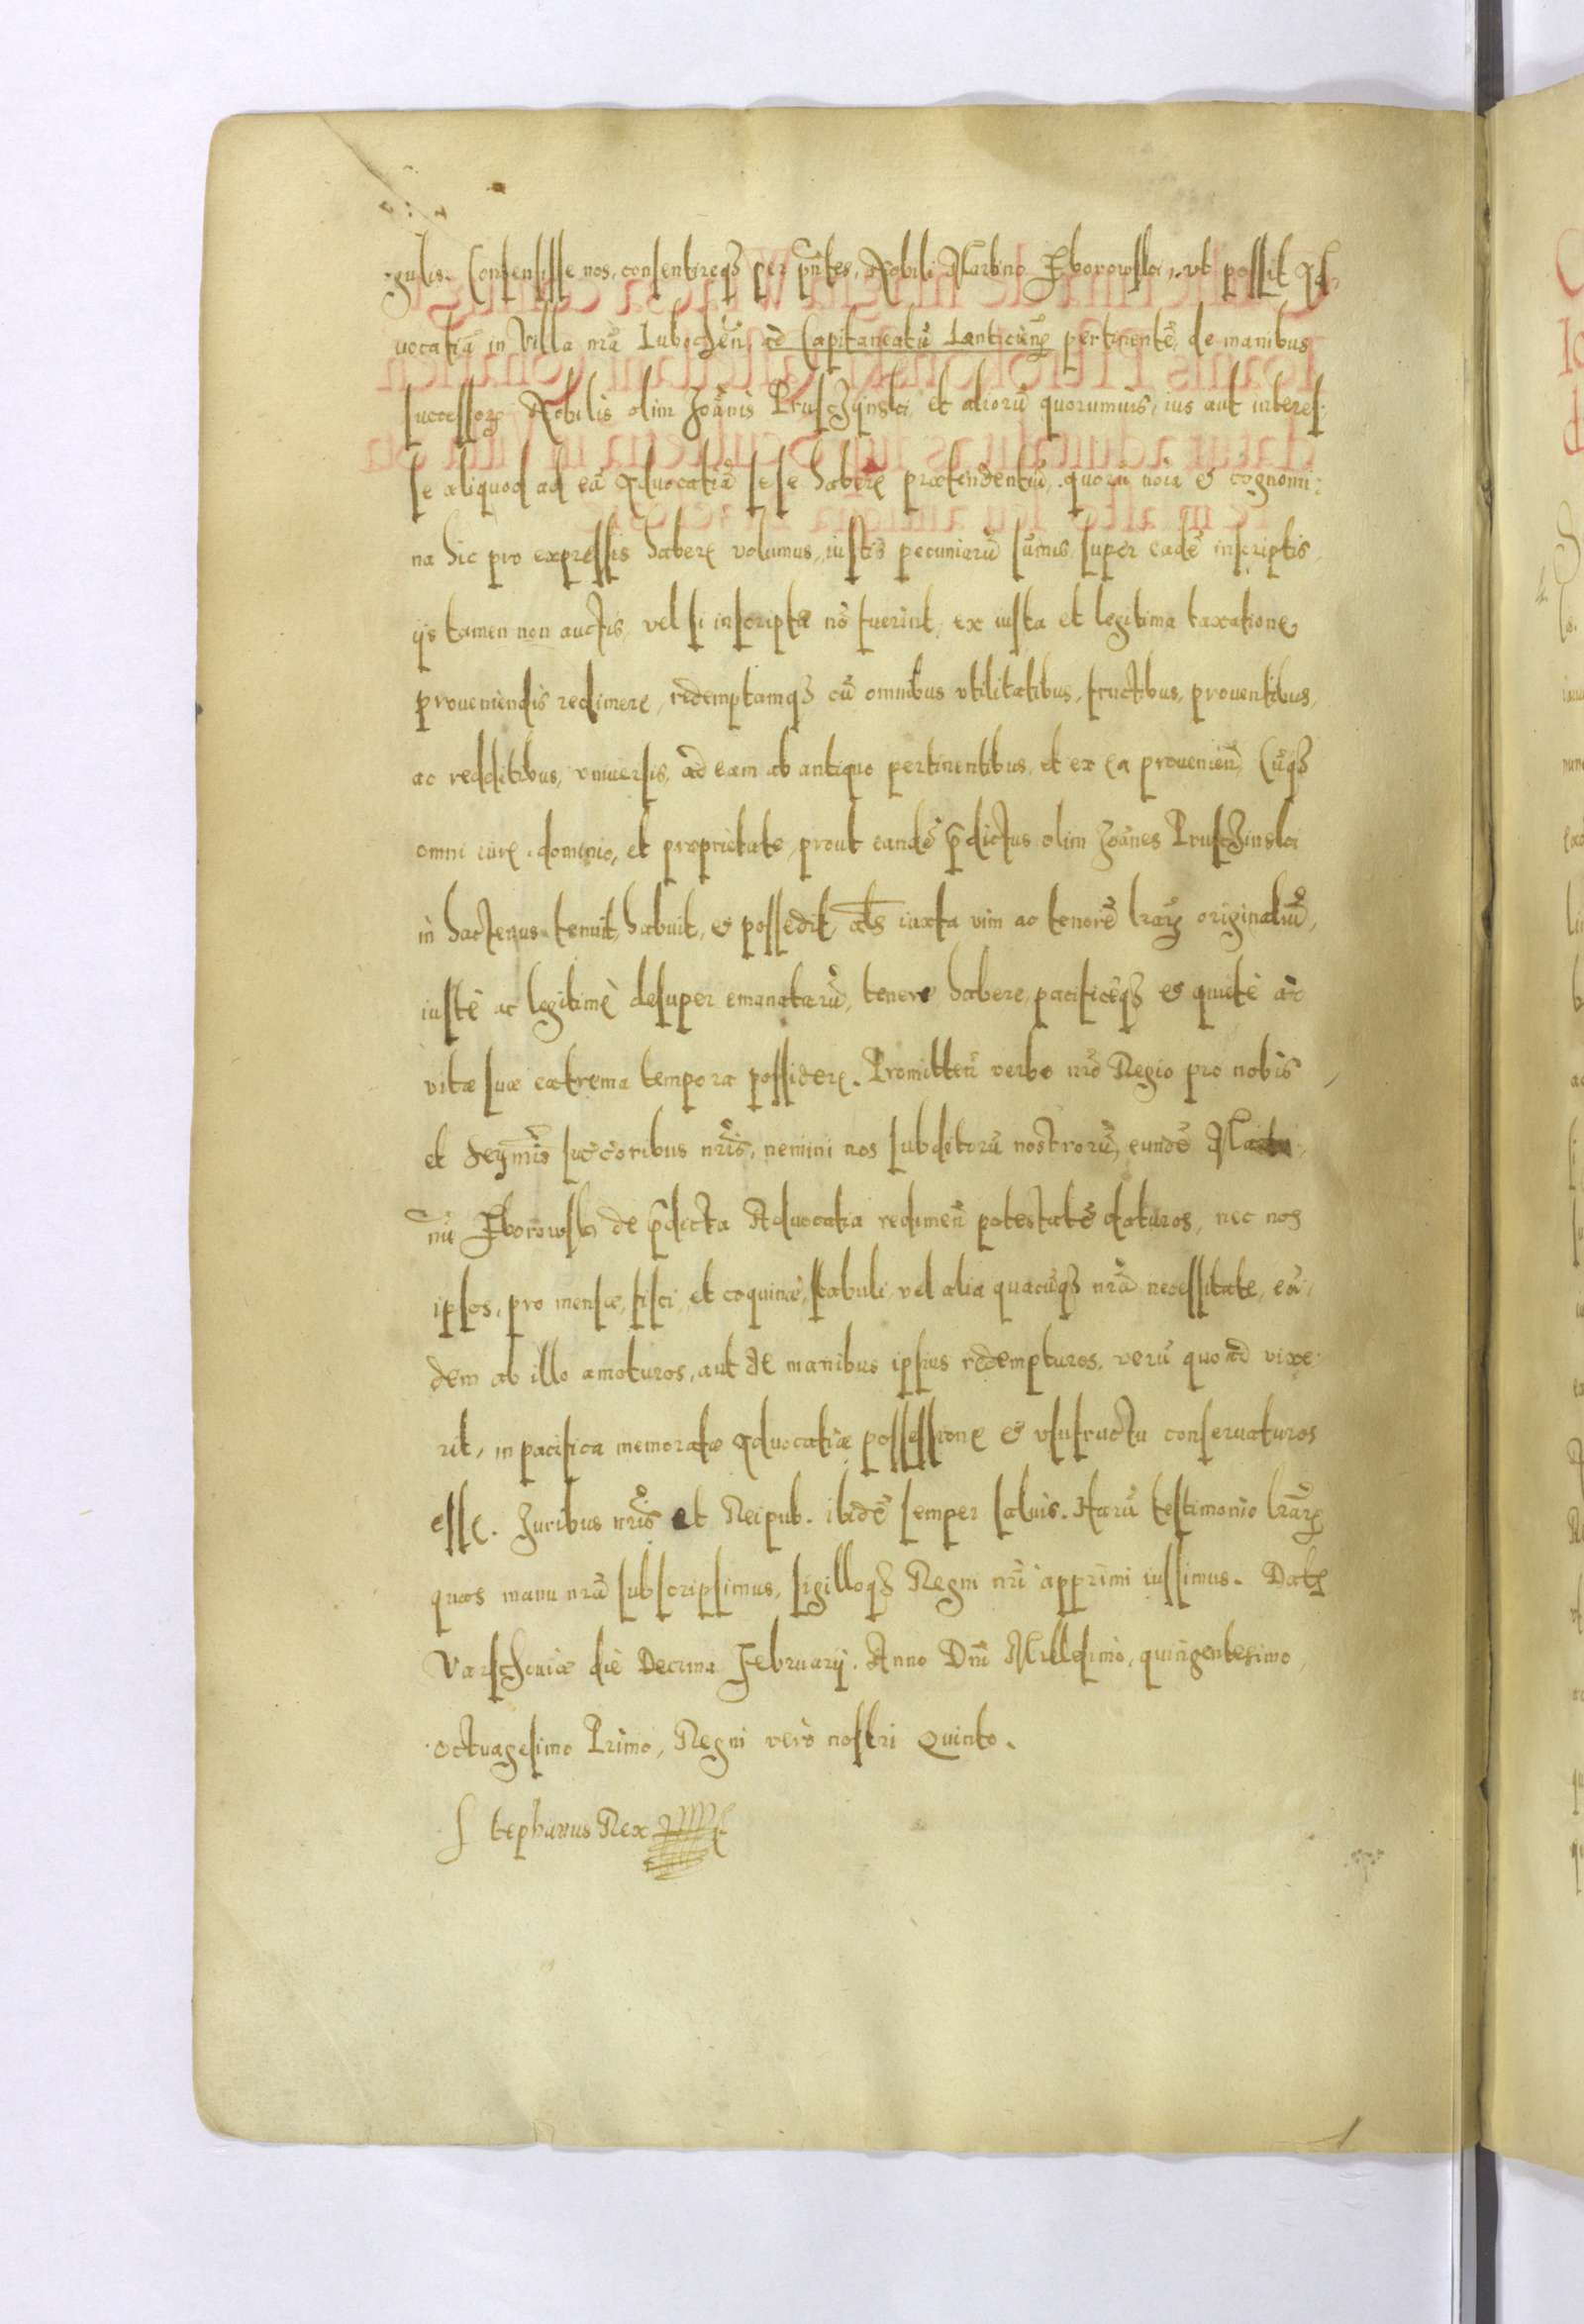 gulis. Consensisse nos, consentireq3 per p̃ntes, Nobili Martino Zborowski, vt possit Ad,
uocatiã in Villa nrã Lubochen̄, ad Capitaneatũ Lanticien̄ pertinentẽ, de manibus
successorꝝ Nobilis olim Joãnis Pruschÿnski, et aliorũ quorumuis, ius aut interes,
se aliquod ad eã Aduocatiã sese habere prætendentiũ, quorũ noĩa & cognomi:
na hic pro expressis habere volumus, iustis pecuniarũ sum̃is super eadẽ inscriptis,
ijs tamen non auctis, vel si inscriptæ nõ fuerint, ex iusta et legitima taxatione
proueniendis redimere, redemptamq3 cũ omnibus vtilitatibus, fructibus, prouentibus,
ac redditibus, vniuersis, ad eam ab antiquo pertinentibus, et ex ea prouenien̄, Cũq3
omni iure, dominio, et proprietate, prout eandẽ p̃dictus olim Joãnes Pruschinski
in hactenus tenuit, habuit, & possedit, iuxta vim ac tenorẽ lrarꝝ originaliũ,
iustè ac legitimè desuper emanatarũ, tenere habere, pacificèq3 & quietè ad
vitæ suæ extrema tempora possidere. Promitten̄ verbo nrõ Regio pro nobis
et Ser̄mis succ̄oribus nrĩs, nemini nos subditorũ nostrorũ, eundẽ Marti,
nũ Zborowski de p̃dicta Aduocatia redimen̄ potestatẽ daturos, nec nos
ipsos, pro mensæ, fisci, et coquinæ, stabuli, vel alia quacũq3 nrã necessitate, eã,
dem ab illo amoturos, aut de manibus ipsius redempturos, verũ quoad vixe:
rit, in pacifica memoratæ Aduocatiæ possessione & vsufructu conseruaturos
esse. Juribus nrĩs et Reipub. ibidẽ semper saluis. Harũ testimonio lrarꝝ
quas manu nrã subscripsimus, sigilloq3 Regni nrĩ apprimi iussimus. Datꝝ
Varscheuiæ die Decima Februarij. Anno Dnĩ Millesimo, quingentesimo,
octuagesimo Primo, Regni verò nostri Quinto.
Stephanus Rex